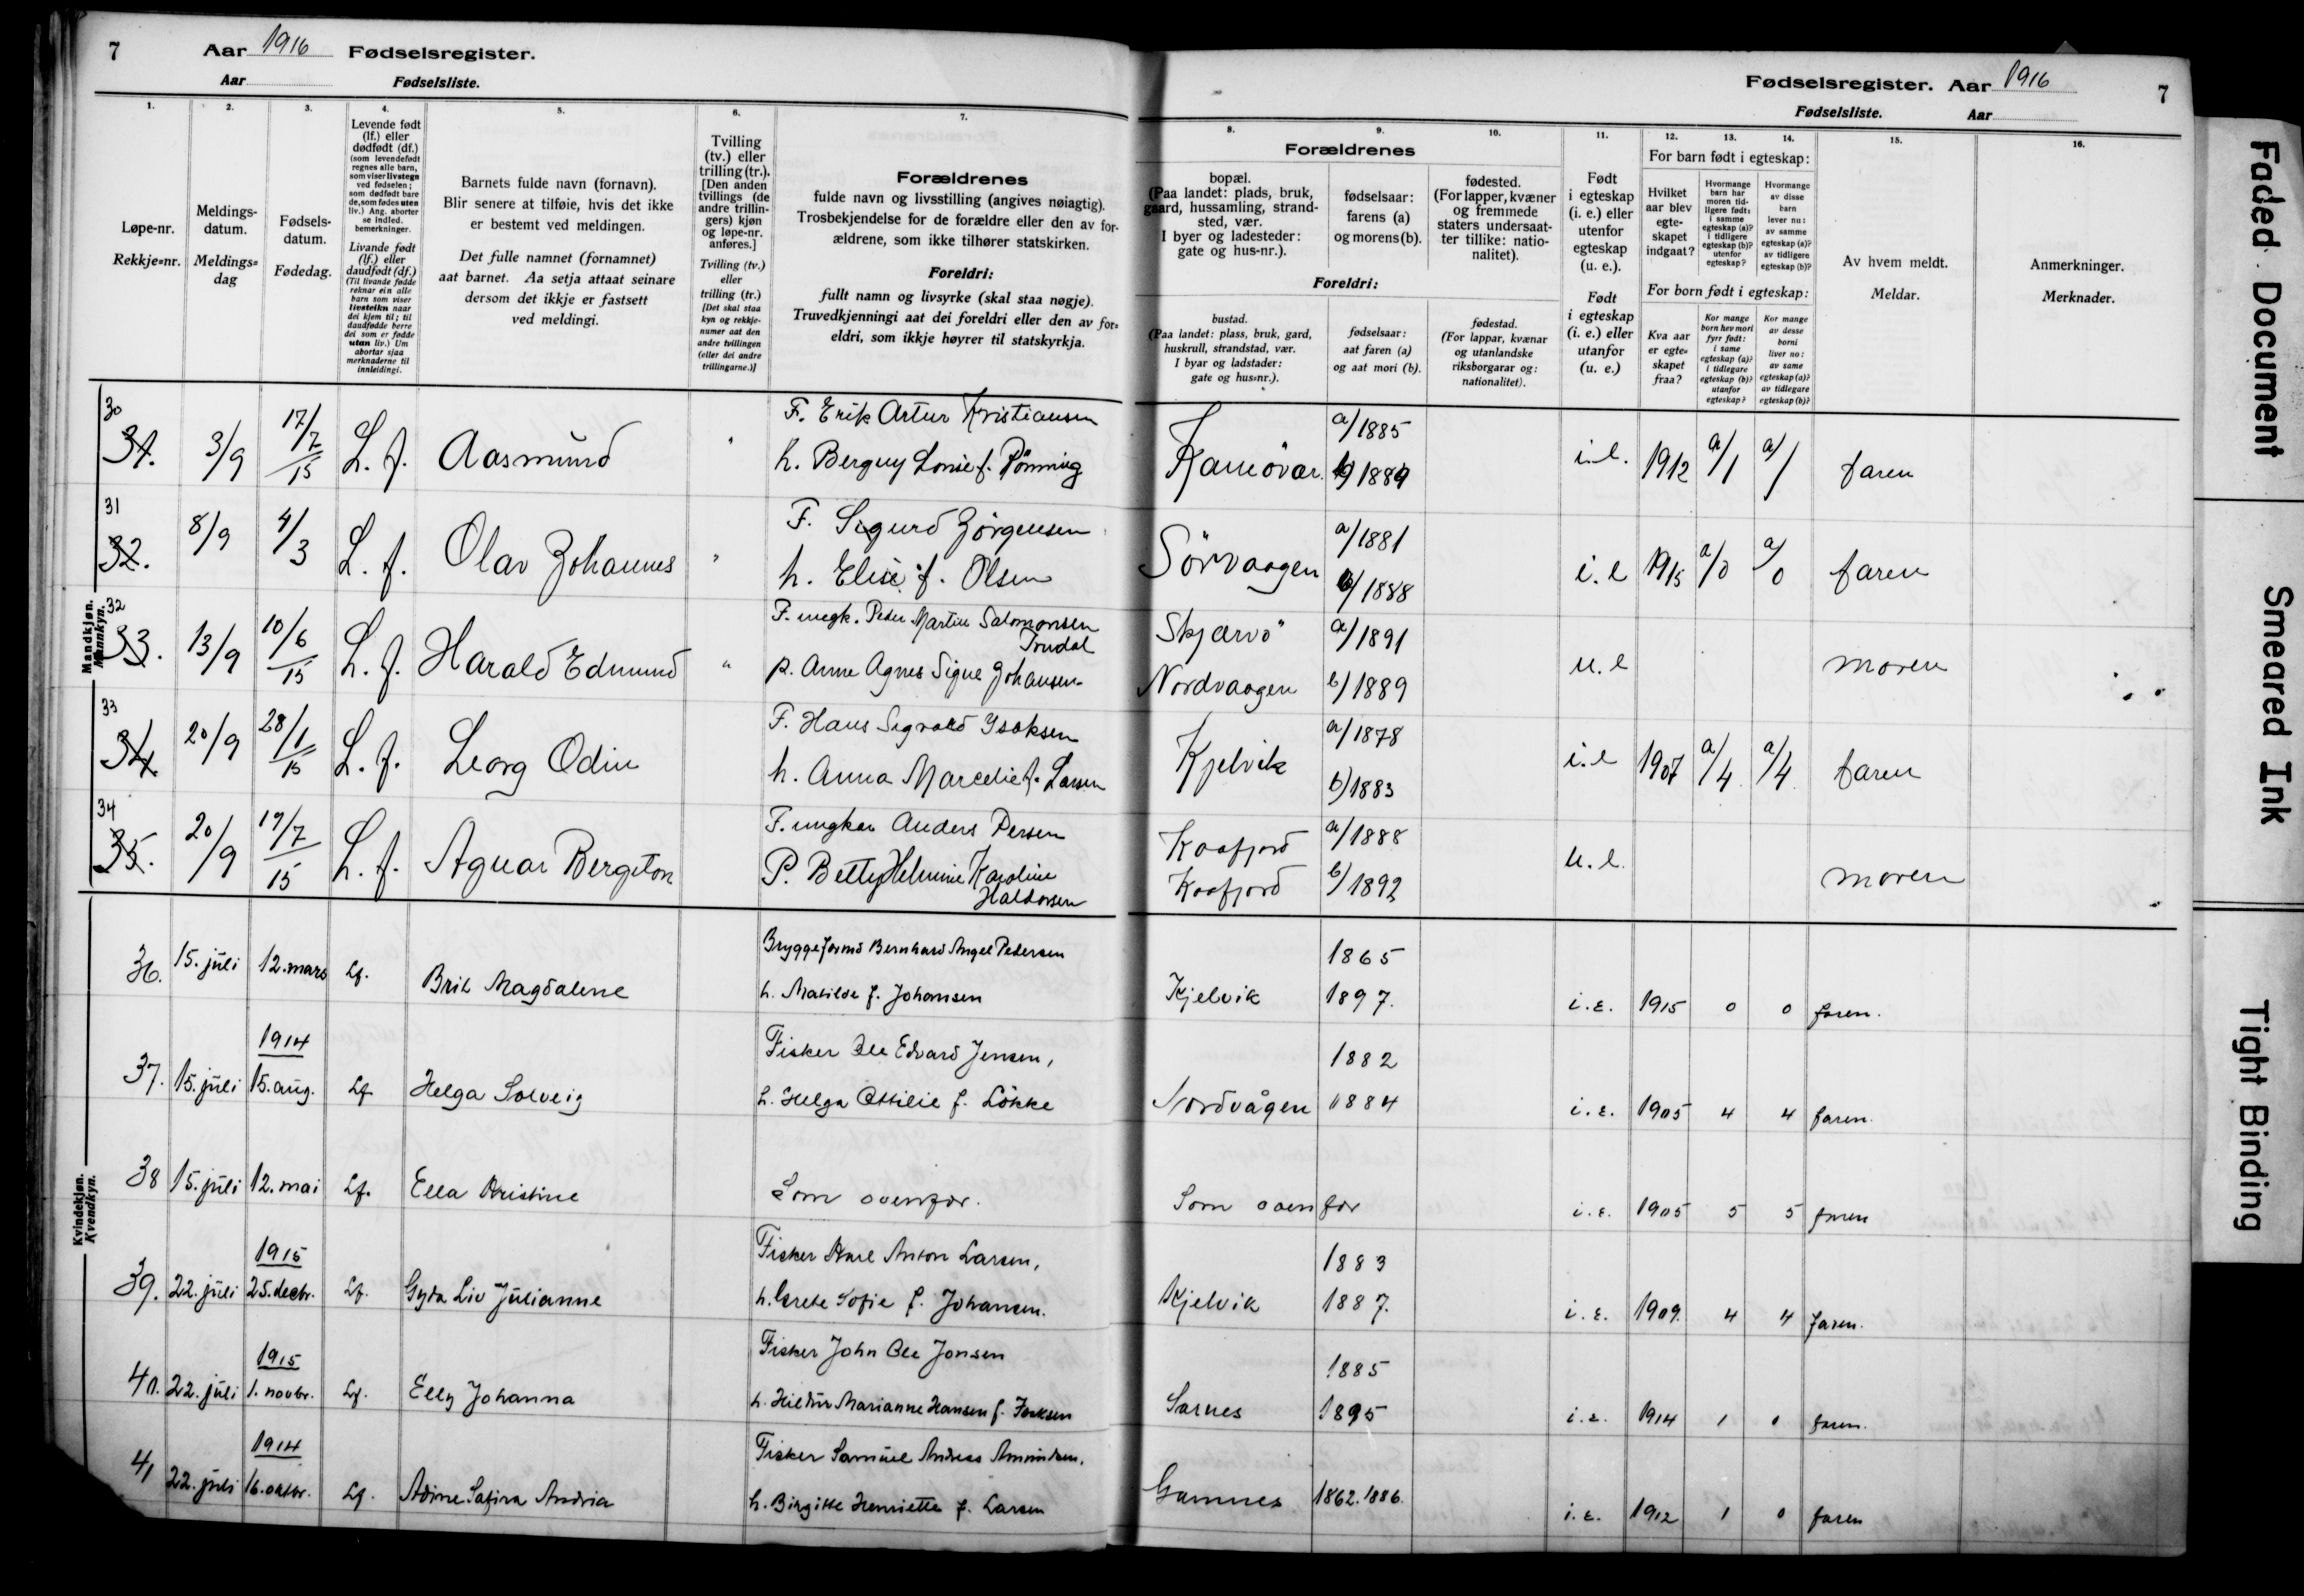 7 Aar 1916 Fødselsregister.
Aar Fødselsliste.
Fødselsregister. Aar 1916 7
Fødselsliste. Aar
1. 2. 3. 4. 5. 6. 7.
Løpe-nr.
Rekkje-nr.
Meldings-
datum.
Meldings-
dag
Fødsels-
datum.
Fødedag.
Levende født
(lf.) eller
dødfødt (df.)
(som levendefødt
regnes alle barn,
som viser livstegn
ved fødselen;
som dødfødt bare
de, som fødes uten
liv.) Ang. aborter
se indled.
bemerkninger.
Livande født
(lf.) eller
daudfødt (df.)
(Til livande fødde
reknar ein alle
barn som viser
livsteikn naar
dei kjem til; til
daudfødde berre
dei som er fødde
utan liv.) Um
abortar sjaa
merknaderne til
innleidingi.
Barnets fulde navn (fornavn).
Blir senere at tilføie, hvis det ikke
er bestemt ved meldingen.
Det fulle namnet (fornamnet)
aat barnet. Aa setja attaat seinare
dersom det ikkje er fastsett
ved meldingi.
Tvilling
(tv.) eller
trilling (tr.).
[Den anden
tvillings (de
andre trillin-
gers) kjøn
og løpe-nr.
anføres.]
Tvilling (tv.)
eller
trilling (tr.)
[Det skal staa
kyn og rekkje-
numer aat den
andre tvillingen
(eller dei andre
trillingarne.)]
Forældrenes
fulde navn og livsstilling (angives nøiagtig).
Trosbekjendelse for de forældre eller den av for-
ældrene, som ikke tilhører statskirken.
Foreldri:
fullt namn og livsyrke (skal staa nøgje).
Truvedkjenningi aat dei foreldri eller den av for-
eldri, som ikkje høyrer til statskyrkja.
8. 9. 10. 11. 12. 13. 14. 15. 16.
Forældrenes
bopæl.
(Paa landet: plads, bruk,
gaard, hussamling, strand-
sted, vær.
I byer og ladesteder:
gate og hus-nr.).
fødselsaar:
farens (a)
og morens (b).
fødested.
(For lapper, kvæner
og fremmede
staters undersaat-
ter tillike: natio-
nalitet).
Foreldri:
bustad.
(Paa landet: plass, bruk, gard,
huskrull, strandstad, vær.
I byar og ladstader:
gate og hus-nr.).
fødselsaar:
aat faren (a)
og aat mori (b).
fødestad.
(For lappar, kvænar
og utanlandske
riksborgarar og:
nationalitet).
Født
i egteskap
(i. e.) eller
utenfor
egteskap
(u. e.).
Født
i egteskap
(i. e.) eller
utanfor
(u. e.)
For barn født i egteskap:
Hvilket
aar blev
egte-
skapet
indgaat?
Hvormange
barn har
moren tid-
ligere født:
i samme
egteskap (a)?
i tidligere
egteskap (b)?
utenfor
egteskap?
Hvormange
av disse
barn
lever nu:
av samme
egteskap (a)?
av tidligere
egteskap (b)?
For born født i egteskap:
Kva aar
er egte-
skapet
fraa?
Kor mange
born hev mori
fyrr født:
i same
egteskap (a)?
i tidlegare
egteskap (b)?
utanfor
egteskap?
Kor mange
av desse
borni
liver no:
av same
egteskap (a)?
av tidlegare
egteskap (b)?
Av hvem meldt.
Meldar.
Anmerkninger.
Merknader.
Mandkjøn.
Mannkyn.
30 31. 3/9 17/7 15 L. f. Aasmund " F. Erik Artur Kristiansen
h. Bergny Lovise f. Rønning
Kamøvær. a/1885 b/1889 i.e. 1912 a/1 a/1 faren
31 32. 8/9 4/3 L. f. Olav Johannes " F. Sigurd Jørgensen
h. Elise f. Olsen
Sørvaagen a/1881 b/1888 i.e 1915 a/0 a/0 faren
32 33. 13/9 10/6 15 L. f. Harald Edmund " F. ungk. Peder Martin Salomonsen
p. Anne Agnes Signe Johansen
Skjærvö a/1891 Nordvaagen b/1889 u.e moren
33 34. 20/9 28/1 15 L. f. Georg Odin F. Hans Sigvald Isaksen
h. Anna Marcelie f. Larsen
Kjelvik a/1878 b/1883 i.e 1907 a/4 a/4 faren
34 35. 20/9 19/7 15 L. f. Agnar Bergiton F. ungkar Anders Persen
P. Betty Helmine Karoline
Haldorsen
Kaafjord a/1888 Kaafjord b/1892 u.e. moren
Kvindekjøn.
Kvendkyn.
36. 15. juli 12. mars Lf. Brit Magdalene Bryggeformd Bernhard Angel Pedersen
h. Matilde f. Johansen
Kjelvik 1865 1897. i.e. 1915 0 0 faren.
37. 15. juli 1914 15. aug. Lf Helga Solveig Fisker Ole Edvard Jensen,
h. Helga Ottilie f. Løkke
Nordvågen 1882 1884 i.e. 1905 4 4 faren.
38 15. juli 12. mai Lf. Ella Kristine Som ovenfor.
Som ovenfor i.e. 1905 5 5 faren
39. 22. juli 1915 25. decbr. Lf. Gyda Liv Julianne Fisker Karl Anton Larsen,
h. Grete Sofie f. Johansen.
Kjelvik 1883 1887. i.e. 1909. 4 4 faren.
40. 22. juli 1915 1. novbr. Lf. Elly Johanna Fisker John Ole Jonsen
h. Hildur Marianne Hansen f. Isaksen
Sarnes 1885 1895 i.e. 1914 1 0 faren.
41 22. juli 1914 16. oktbr. Lf. Adine Safira Andria Fisker Samuel Andreas Amundsen,
h. Birgitte Henriette f. Larsen
Gamnes 1862. 1886. i.e. 1912 1 0 faren
Faded Document
Smeared Ink
Tight Binding